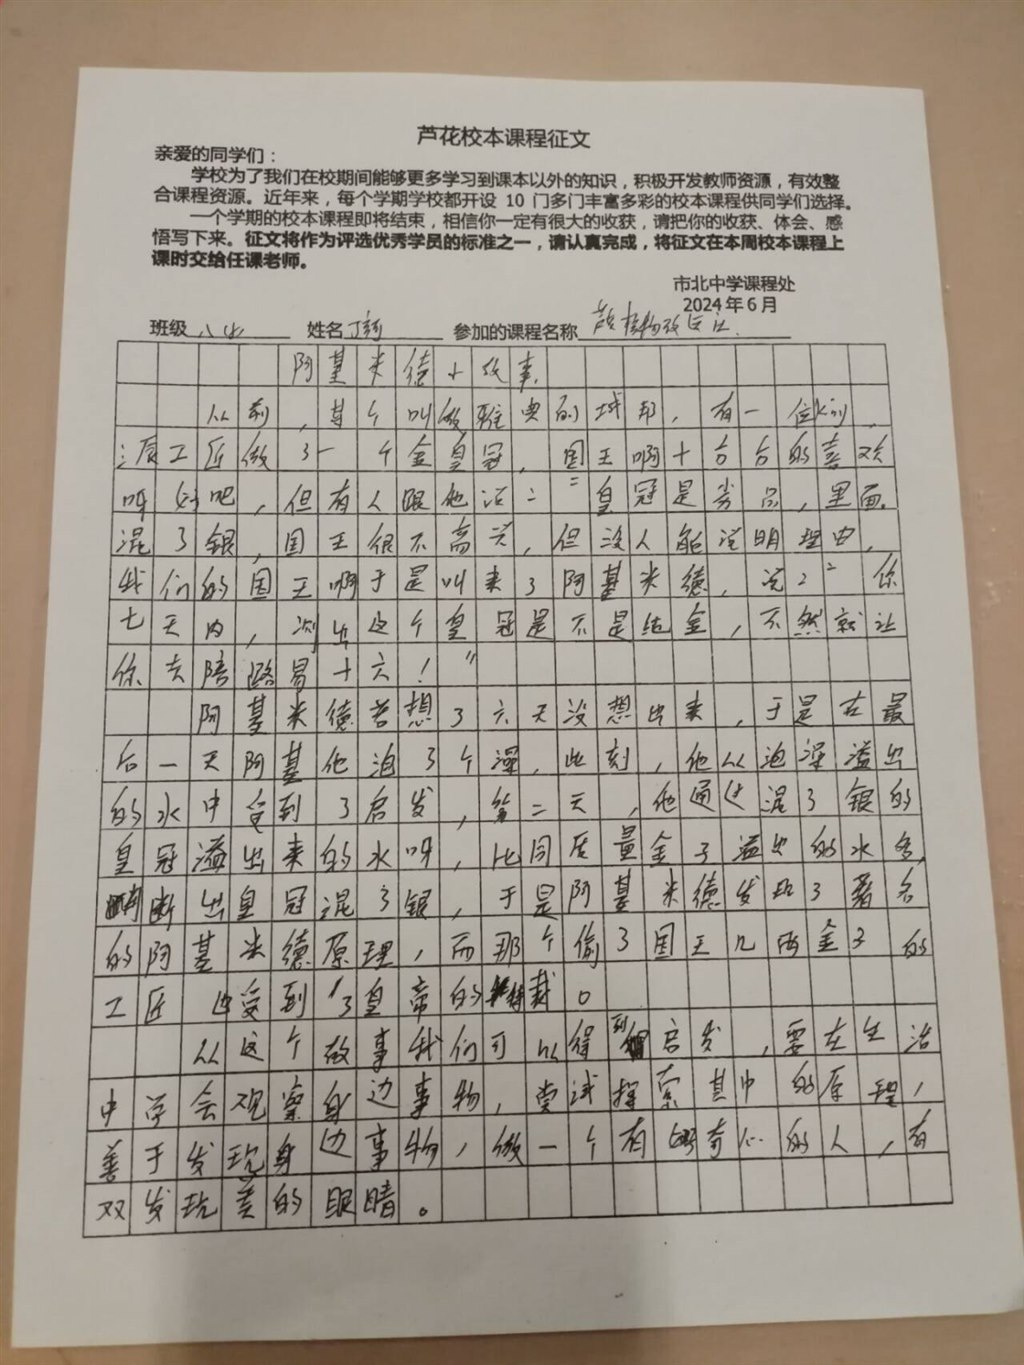 芦花校本课程征文
亲爱的同学们：
学校为了我们在校期间能够更多学习到课本以外的知识，积极开发教师资源，有效整
合课程资源。近年来，每个学期学校都开设 10 门多门丰富多彩的校本课程供同学们选择。
一个学期的校本课程即将结束，相信你一定有很大的收获，请把你的收获、体会、感
悟写下来。征文将作为评选优秀学员的标准之一，请认真完成，将征文在本周校本课程上
课时交给任课老师。
市北中学课程处
2024 年 6 月
班级 姓名 参加的课程名称
阿基米德 故事
从前，某个叫做雅典的城邦，有一
工匠做了一个金皇冠，国王啊十台台的喜欢
呀好吧，但有人跟他说："皇冠是劣品，里面
混了银，国王很不高兴，但没人能说明理由，
我们的国王啊于是叫来了阿基米德，说："你
七天内，测出这个皇冠是不是纯金，不然就让
你去陪路易十六！"
阿基米德苦想了六天没想出来，于是在最
后一天阿基他泡了个澡，此刻，他从泡澡溢出
的水中受到了启发，第二天，他通过混了银的
皇冠溢出来的水呀，比同质量金子溢出的水多，
判断出皇冠混了银，于是阿基米德发现了著名
的阿基米德原理，而那个偷了国王几两金子的
工匠也受到了皇帝的制裁。
从这个故事我们可以得到启发，要在生活
中学会观察身边事物，尝试探索其中的原理，
善于发现身边事物，做一个有好奇心的人，有
双发现美的眼睛。